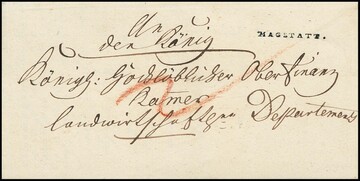 An
den König
MAGSTATT.
Königl: Hochlöblicher Ober Finanz
Kamer
landwirtschaftl Departement